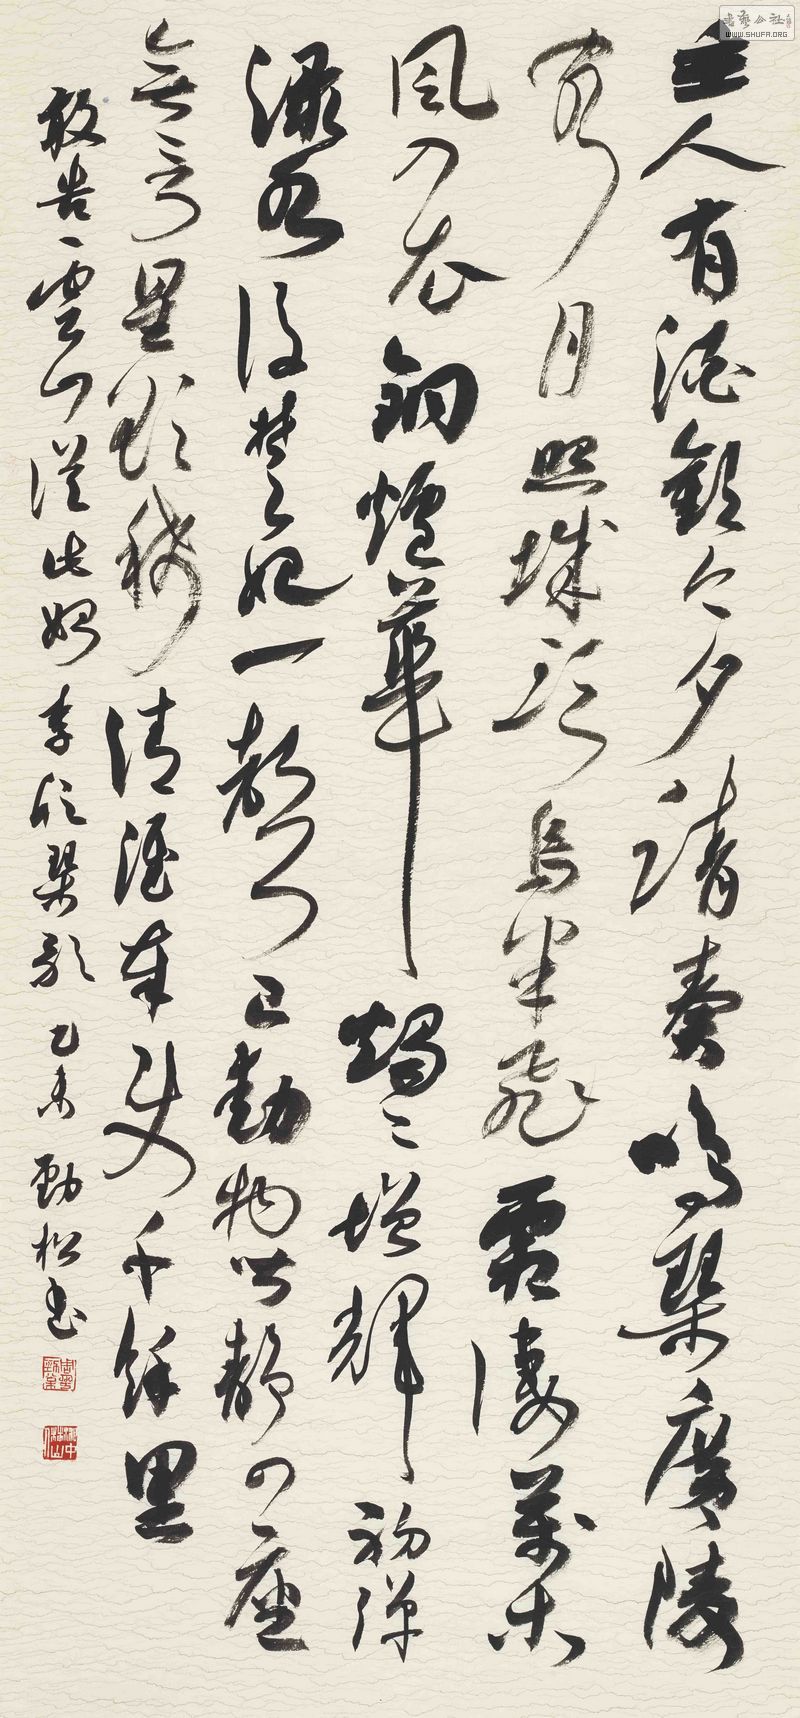 主人有酒歡今夕請奏鳴琴廣陵
客月照城頭烏半飛霜淒萬木
風入衣銅爐華燭〻增輝初彈
淥水後楚妃一聲已動物皆靜四座
無言星欲稀清淮奉使千餘里
敢告雲山從此始 李頎琴歌 乙未勁松書
書藝公社
WWW.SHUFA.ORG